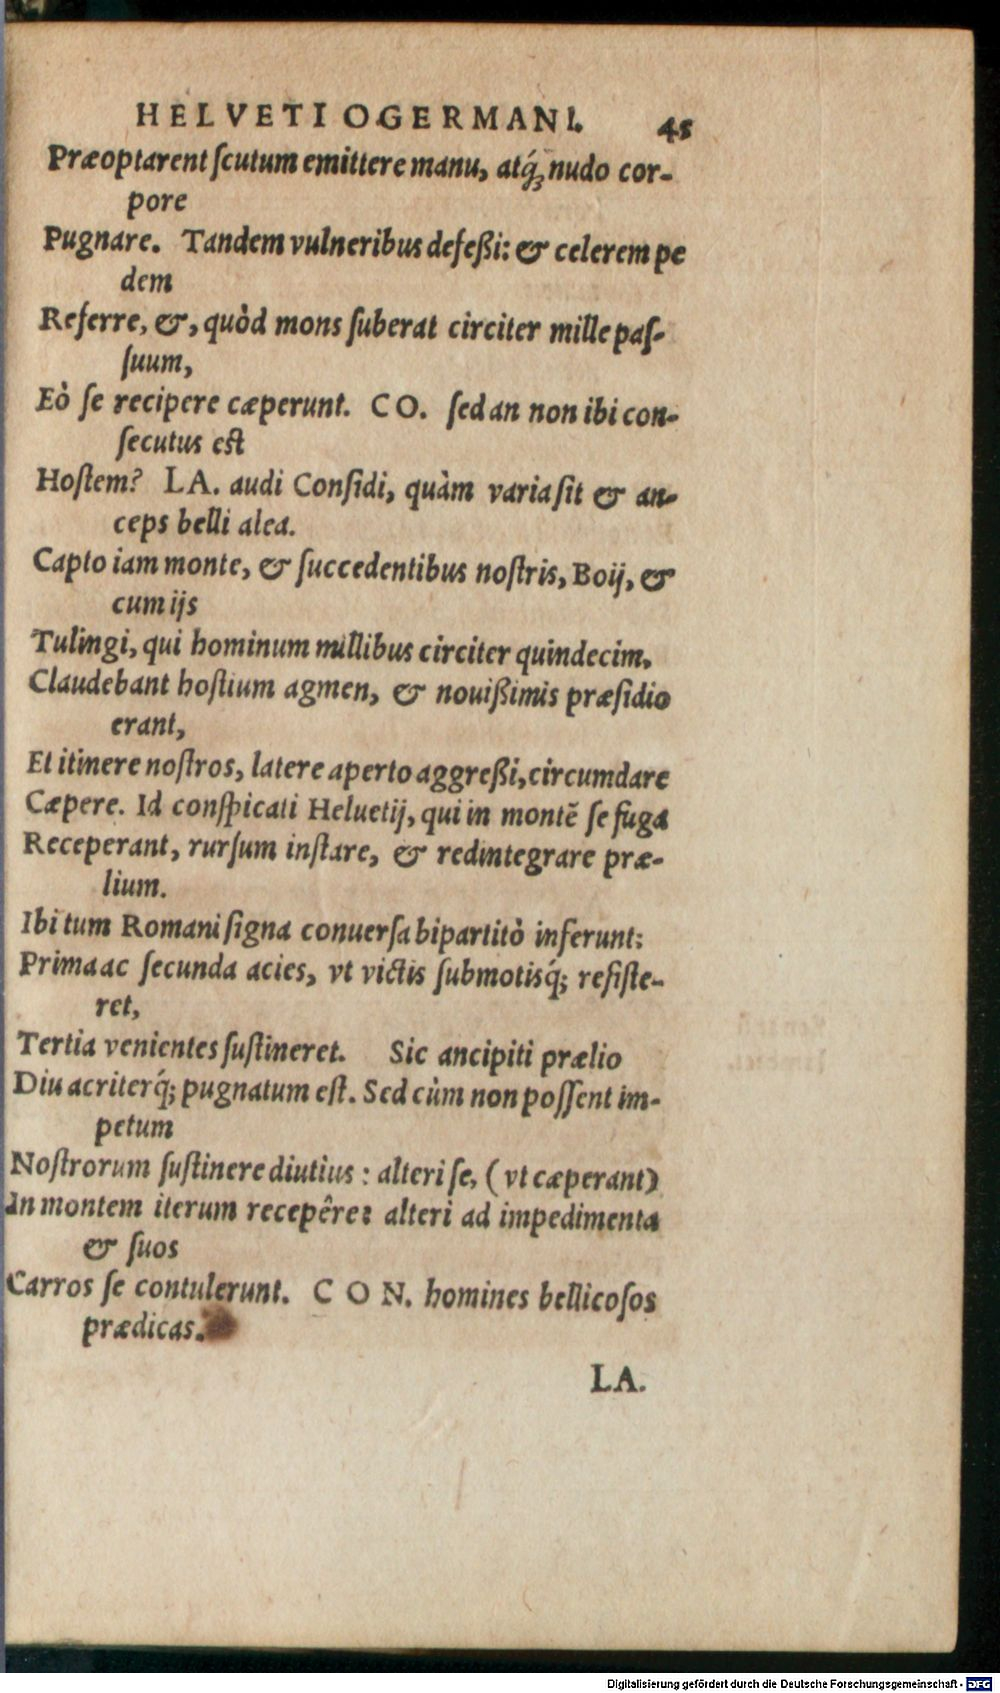 HELVETIOGERMANI. 45
Præoptarent ſcutum emittere manu, atq́; nudo cor-
pore
Pugnare. Tandem vulneribus defeßi: & celerem pe
dem
Referre, &, quòd mons ſuberat circiter mille paſ-
ſuum,
Eò ſe recipere cæperunt. CO. ſed an non ibi con-
ſecutus est
Hoſtem? LA. audi Conſidi, quàm varia ſit & an-
ceps belli alea.
Capto iam monte, & ſuccedentibus noſtris, Boij, &
cum ijs
Tulingi, qui hominum millibus circiter quindecim,
Claudebant hoſtium agmen, & nouißimis præſidio
erant,
Et itinere noſtros, latere aperto aggreßi, circumdare
Cæpere. Id conſpicati Heluetij, qui in montē ſe fuga
Receperant, rurſum inſtare, & redintegrare præ-
lium.
Ibi tum Romani ſigna conuerſa bipartitò inferunt:
Prima ac ſecunda acies, vt victis ſubmotisq́; reſiſte-
ret,
Tertia venientes ſuſtineret. Sic ancipiti prælio
Diu acriterq́; pugnatum eſt. Sed cùm non poſſent im-
petum
Noſtrorum ſuſtinere diutius: alteri ſe, (vt cæperant)
In montem iterum recepêre: alteri ad impedimenta
& ſuos
Carros ſe contulerunt. CON. homines bellicoſos
prædicas.
LA.
Digitalisierung gefördert durch die Deutsche Forschungsgemeinschaft - DFG